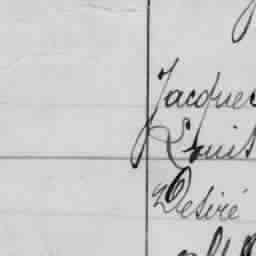 Jacques
Louis
Désiré